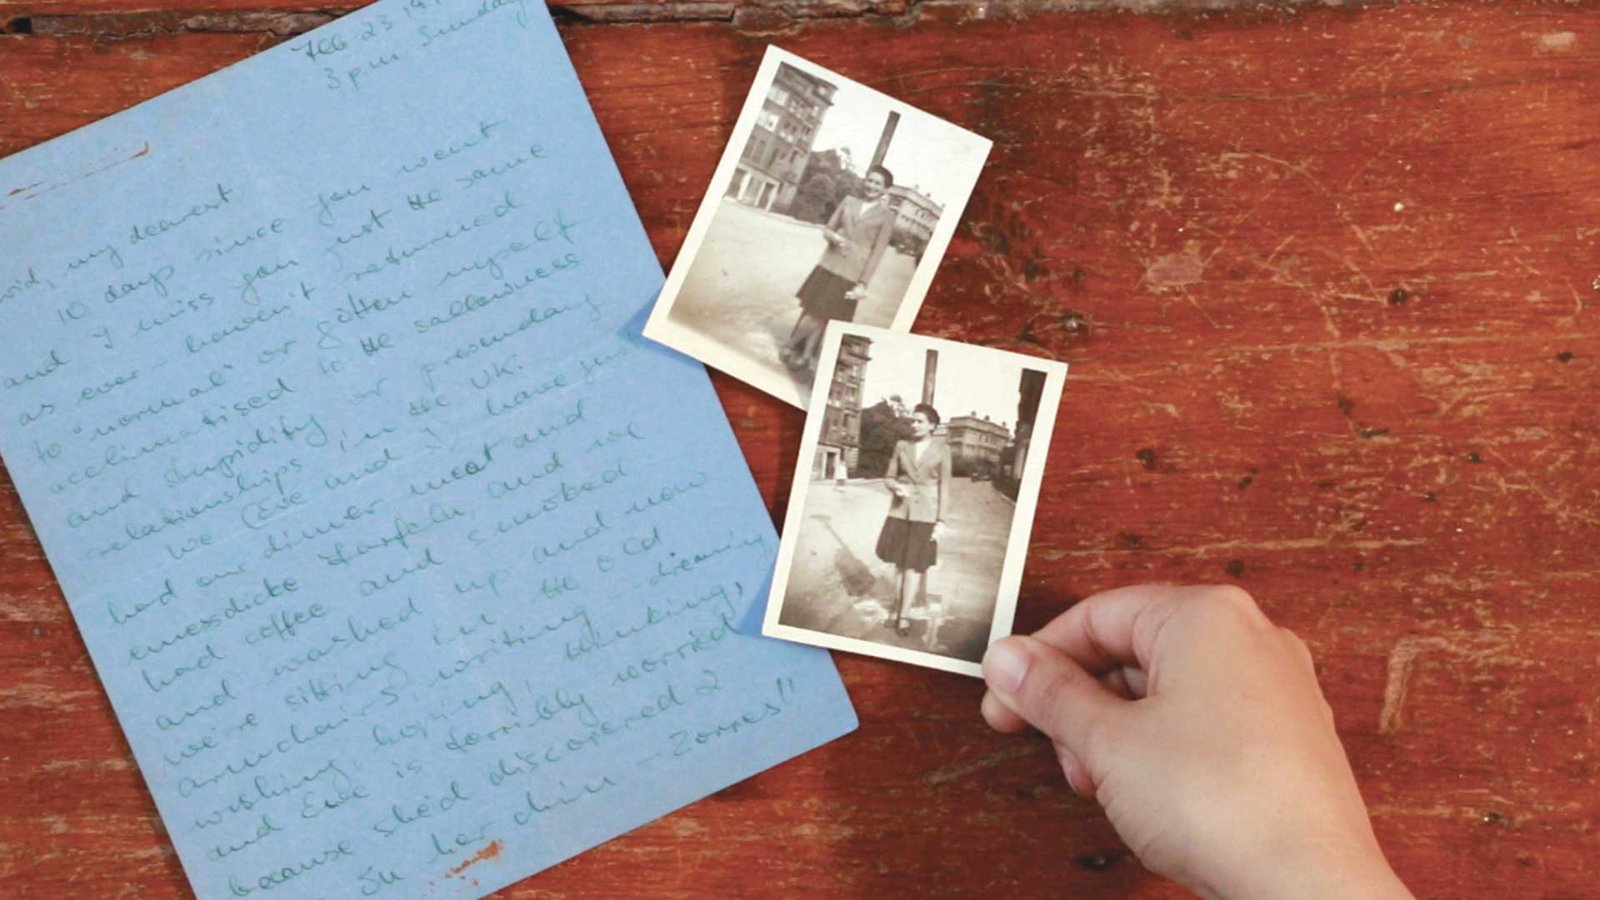 Feb 23 19
3 pm Sunday
my dearest
10 days since you went
and I miss you just the same
as ever haven't returned
to "normal" or gotten myself
acclimatised to the sallowness
and stupidity or presentday
relationships in the UK.
We (Eve and I have just
had our dinner meat and
had coffee and smoked
and washed up and now
we're sitting in the old
armchairs, writing, dreaming
wishing, hoping, blinking,
and Eve is terribly worried
because she'd discovered 2
in her chin